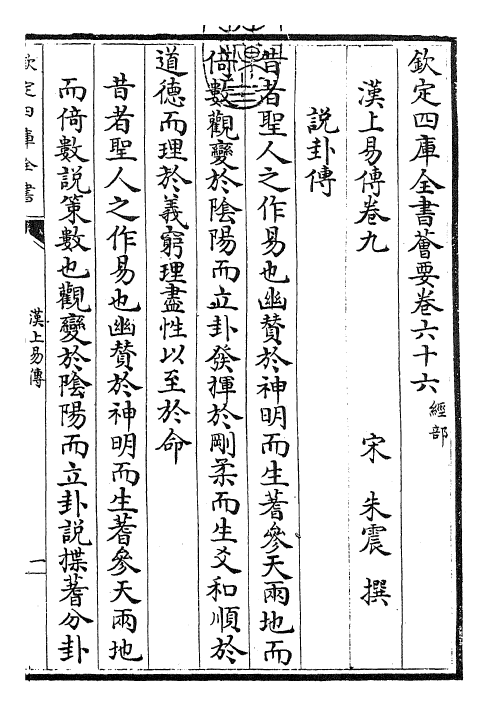 欽定四庫全書薈要卷六十六
經部
漢上易傳卷九
宋 朱震 撰
說卦傳
昔者聖人之作易也幽贊於神明而生蓍參天兩地而
倚數觀變於陰陽而立卦發揮於剛柔而生爻和順於
道德而理於義窮理盡性以至於命
昔者聖人之作易也幽贊於神明而生蓍參天兩地
而倚數說策數也觀變於陰陽而立卦說揲蓍分卦
欽定四庫全書
漢上易傳
一